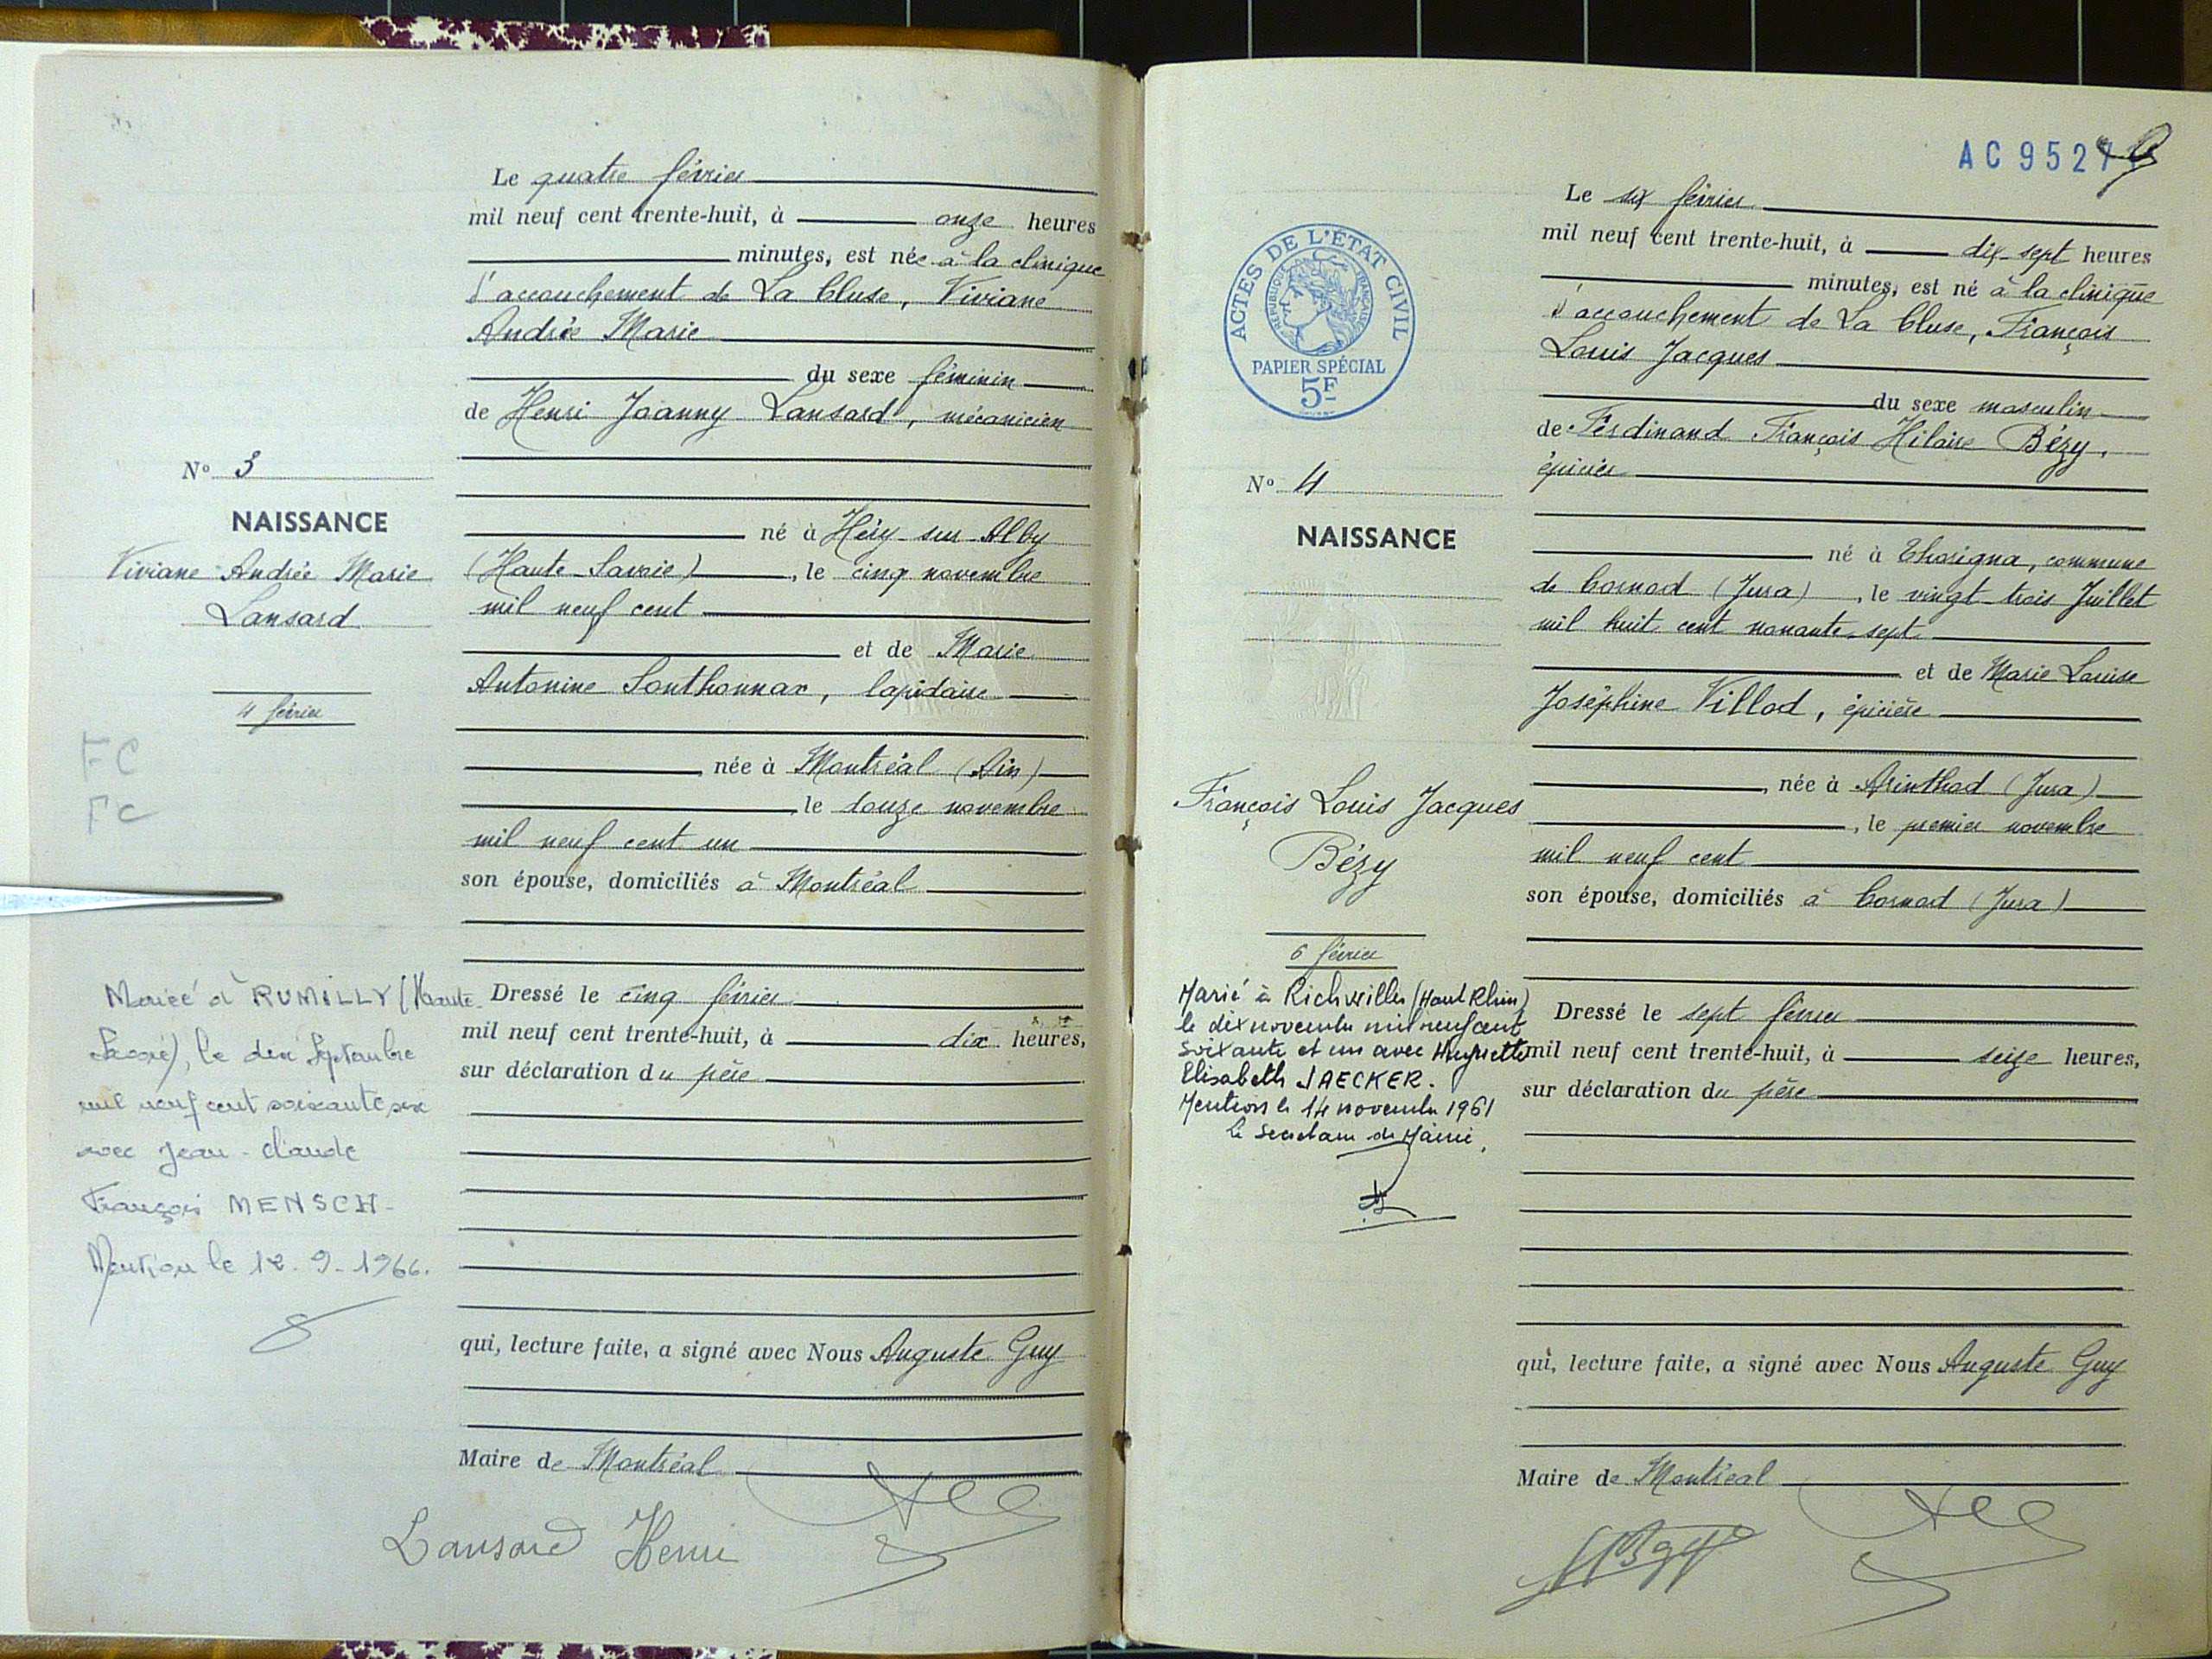 Le quatre février
mil neuf cent trente-huit, à onze heures
minutes, est née à la clinique
d'accouchement de La Cluse, Viviane
Andrée Marie
du sexe féminin
de Henri Joanny Lansard, mécanicien
N° 3
NAISSANCE
Viviane Andrée Marie
Lansard
4 février
FC
FC
né à Héry-sur-Alby
(Haute-Savoie), le cinq novembre
mil neuf cent
et de Marie
Antonine Sonthonnax, lapidaire
née à Montréal (Ain)
le douze novembre
mil neuf cent un
son épouse, domiciliés à Montréal
Mariée à RUMILLY (Haute-
Savoie), le dix Septembre
mil neuf cent soixante six
avec Jean-Claude
François MENSCH-
Mention le 12.9.1966.
Dressé le cinq février
mil neuf cent trente-huit, à dix heures,
sur déclaration du père
qui, lecture faite, a signé avec Nous Auguste Guy
Maire de Montréal
Lansard Henri
AC 952
Le six février
mil neuf cent trente-huit, à dix-sept heures
minutes, est né à la clinique
d'accouchement de La Cluse, François
Louis Jacques
du sexe masculin
de Ferdinand François Hilaire Bézy,
épicier
ACTES DE L'ÉTAT CIVIL
RÉPUBLIQUE FRANÇAISE
PAPIER SPÉCIAL
5F
N° 4
NAISSANCE
né à Thoirigna, commune
de Cornod (Jura), le vingt-trois Juillet
mil huit cent nonante-sept
et de Marie Louise
Joséphine Villod, épicière
née à Arinthod (Jura)
, le premier novembre
mil neuf cent
son épouse, domiciliés à Cornod (Jura)
François Louis Jacques
Bézy
6 février
Marié à Richwiller (Haut Rhin)
le dix novembre mil neuf cent
soixante et un avec Henriette
Elisabeth JAECKER.
Mention le 14 novembre 1961
le Secrétaire de Mairie,
Dressé le sept février
mil neuf cent trente-huit, à seize heures,
sur déclaration du père
qui, lecture faite, a signé avec Nous Auguste Guy
Maire de Montréal